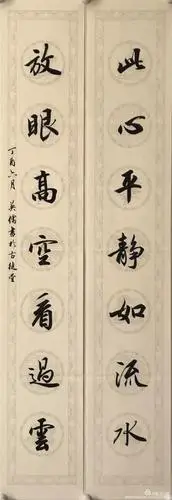 此心平静如流水
放眼高空看過雲
丁酉六月 吴儒書於古槐堂